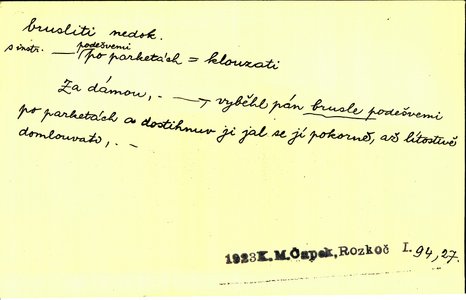 brusliti nedok.
s instr. — podešvemi po parketách = klouzati
Za dámou, . — , vyběhl pán brusle podešvemi
po parketách a dostihnuv ji jal se jí pokorně, až lítostivě
domlouvati, . –
1923 K.M.Čapek, Rozkoč I. 94, 27.